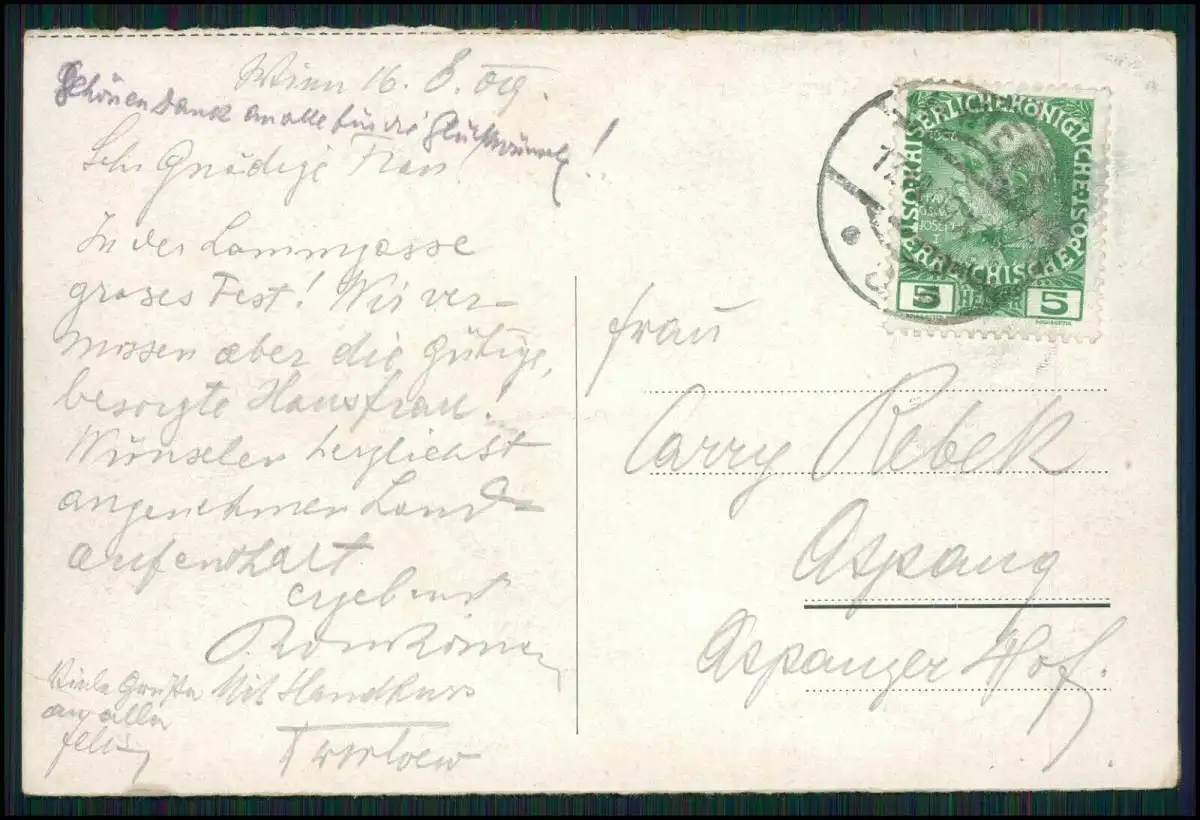 Wien 16. 8. 09.
Schönen Dank an alle für die Glückwünsche!
Sehr Gnädige Frau!
In der Lammgasse
groses Fest! Wir ver-
missen aber die gütige,
besorgte Hausfrau!
Wünschen herzlichst
angenehmen Land-
aufenthalt
ergebenst
Viele Grüße
an alle
Mit Handkuss
Frau
Carry Rebek
Aspang
Aspanger Hof.
KAISERLICHE KÖNIGLICHE
ÖSTERREICHISCHE POST
5 HELLER 5